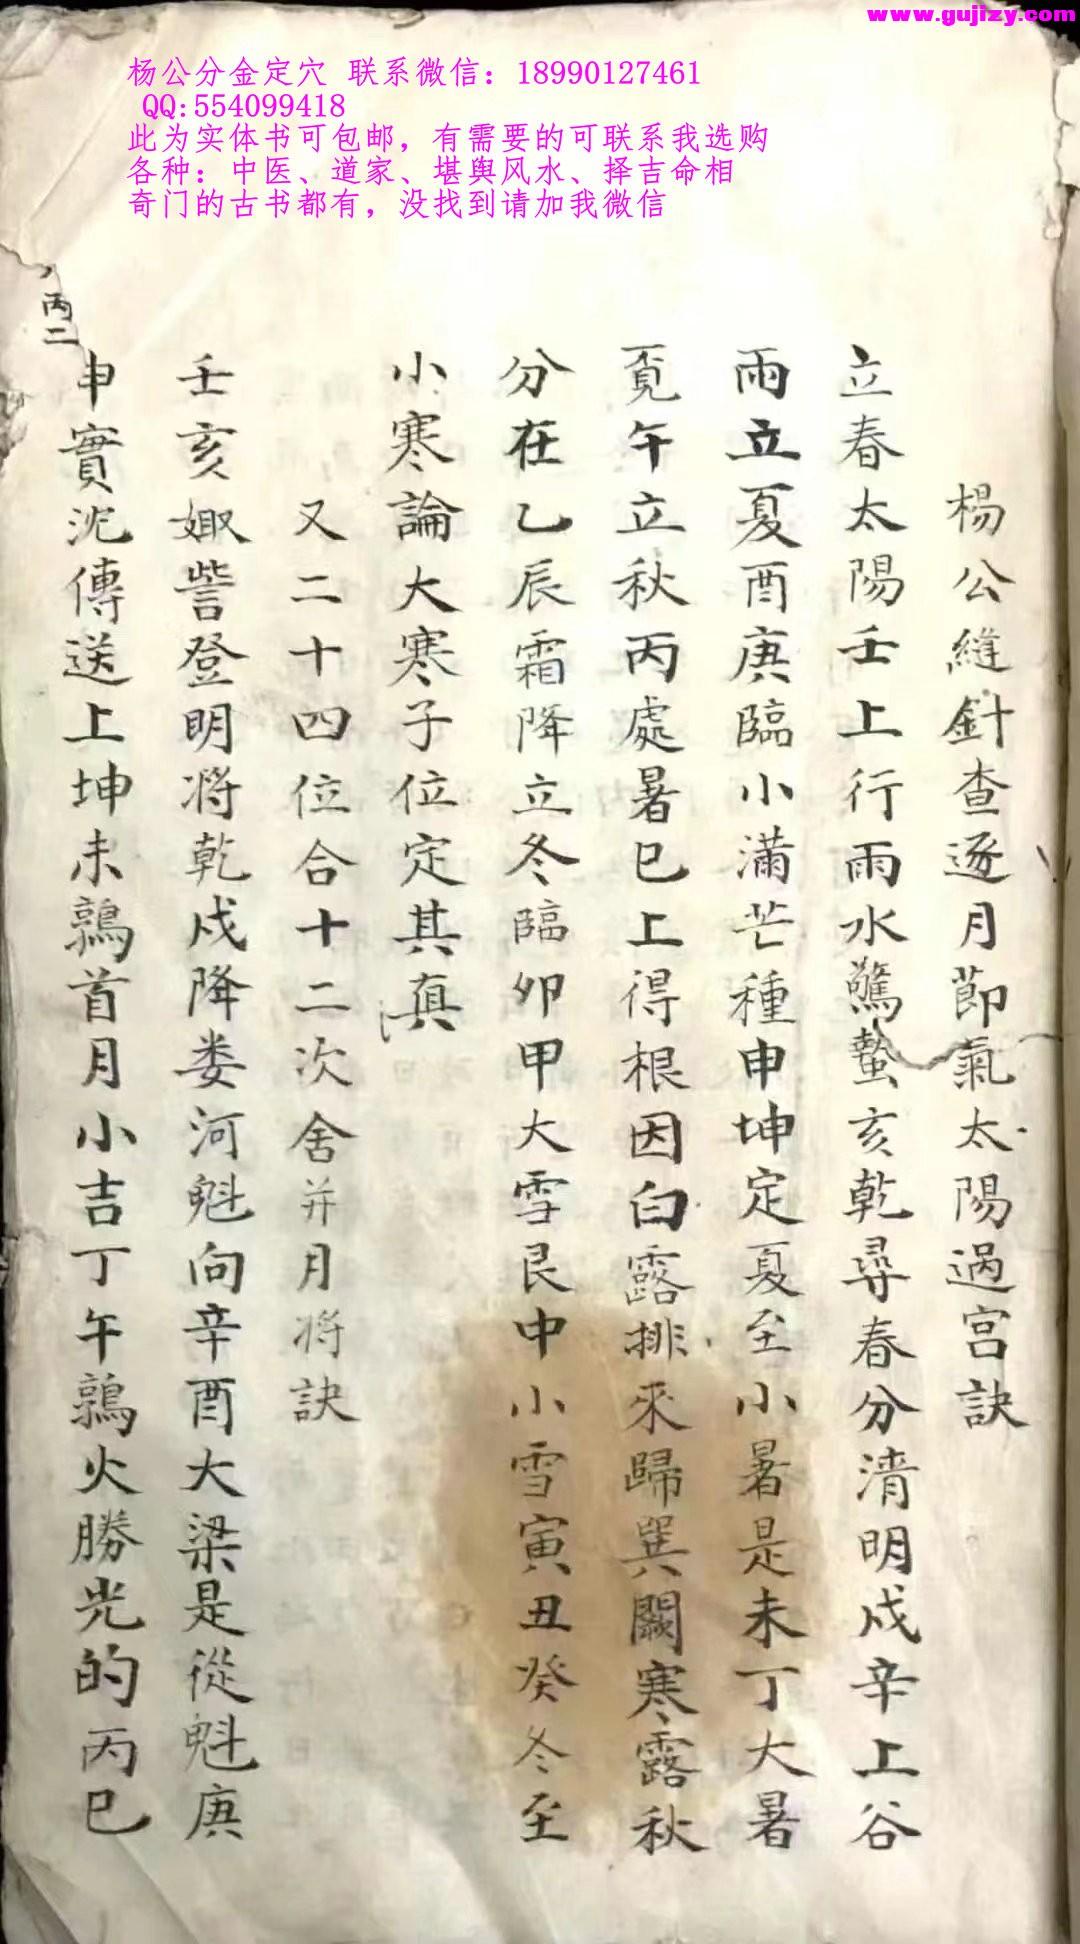 www.gujizy.com
杨公分金定穴 联系微信：18990127461
QQ:554099418
此为实体书可包邮，有需要的可联系我选购
各种：中医、道家、堪舆风水、择吉命相
奇门的古书都有，没找到请加我微信
楊公縫針查逐月節氣太陽過宮訣
立春太陽壬上行雨水驚蟄亥乾尋春分清明戌辛上谷
雨立夏酉庚臨小滿芒種申坤定夏至小暑是未丁大暑
覓午立秋丙處暑巳上得根因白露排來歸巽闕寒露秋
分在乙辰霜降立冬臨卯甲大雪艮中小雪寅丑癸冬至
小寒論大寒子位定其真
又二十四位合十二次舍并月將訣
壬亥娵訾登明將乾戌降娄河魁向辛酉大梁是從魁庚
申實沈傳送上坤未鶉首月小吉丁午鶉火勝光的丙巳
丙二